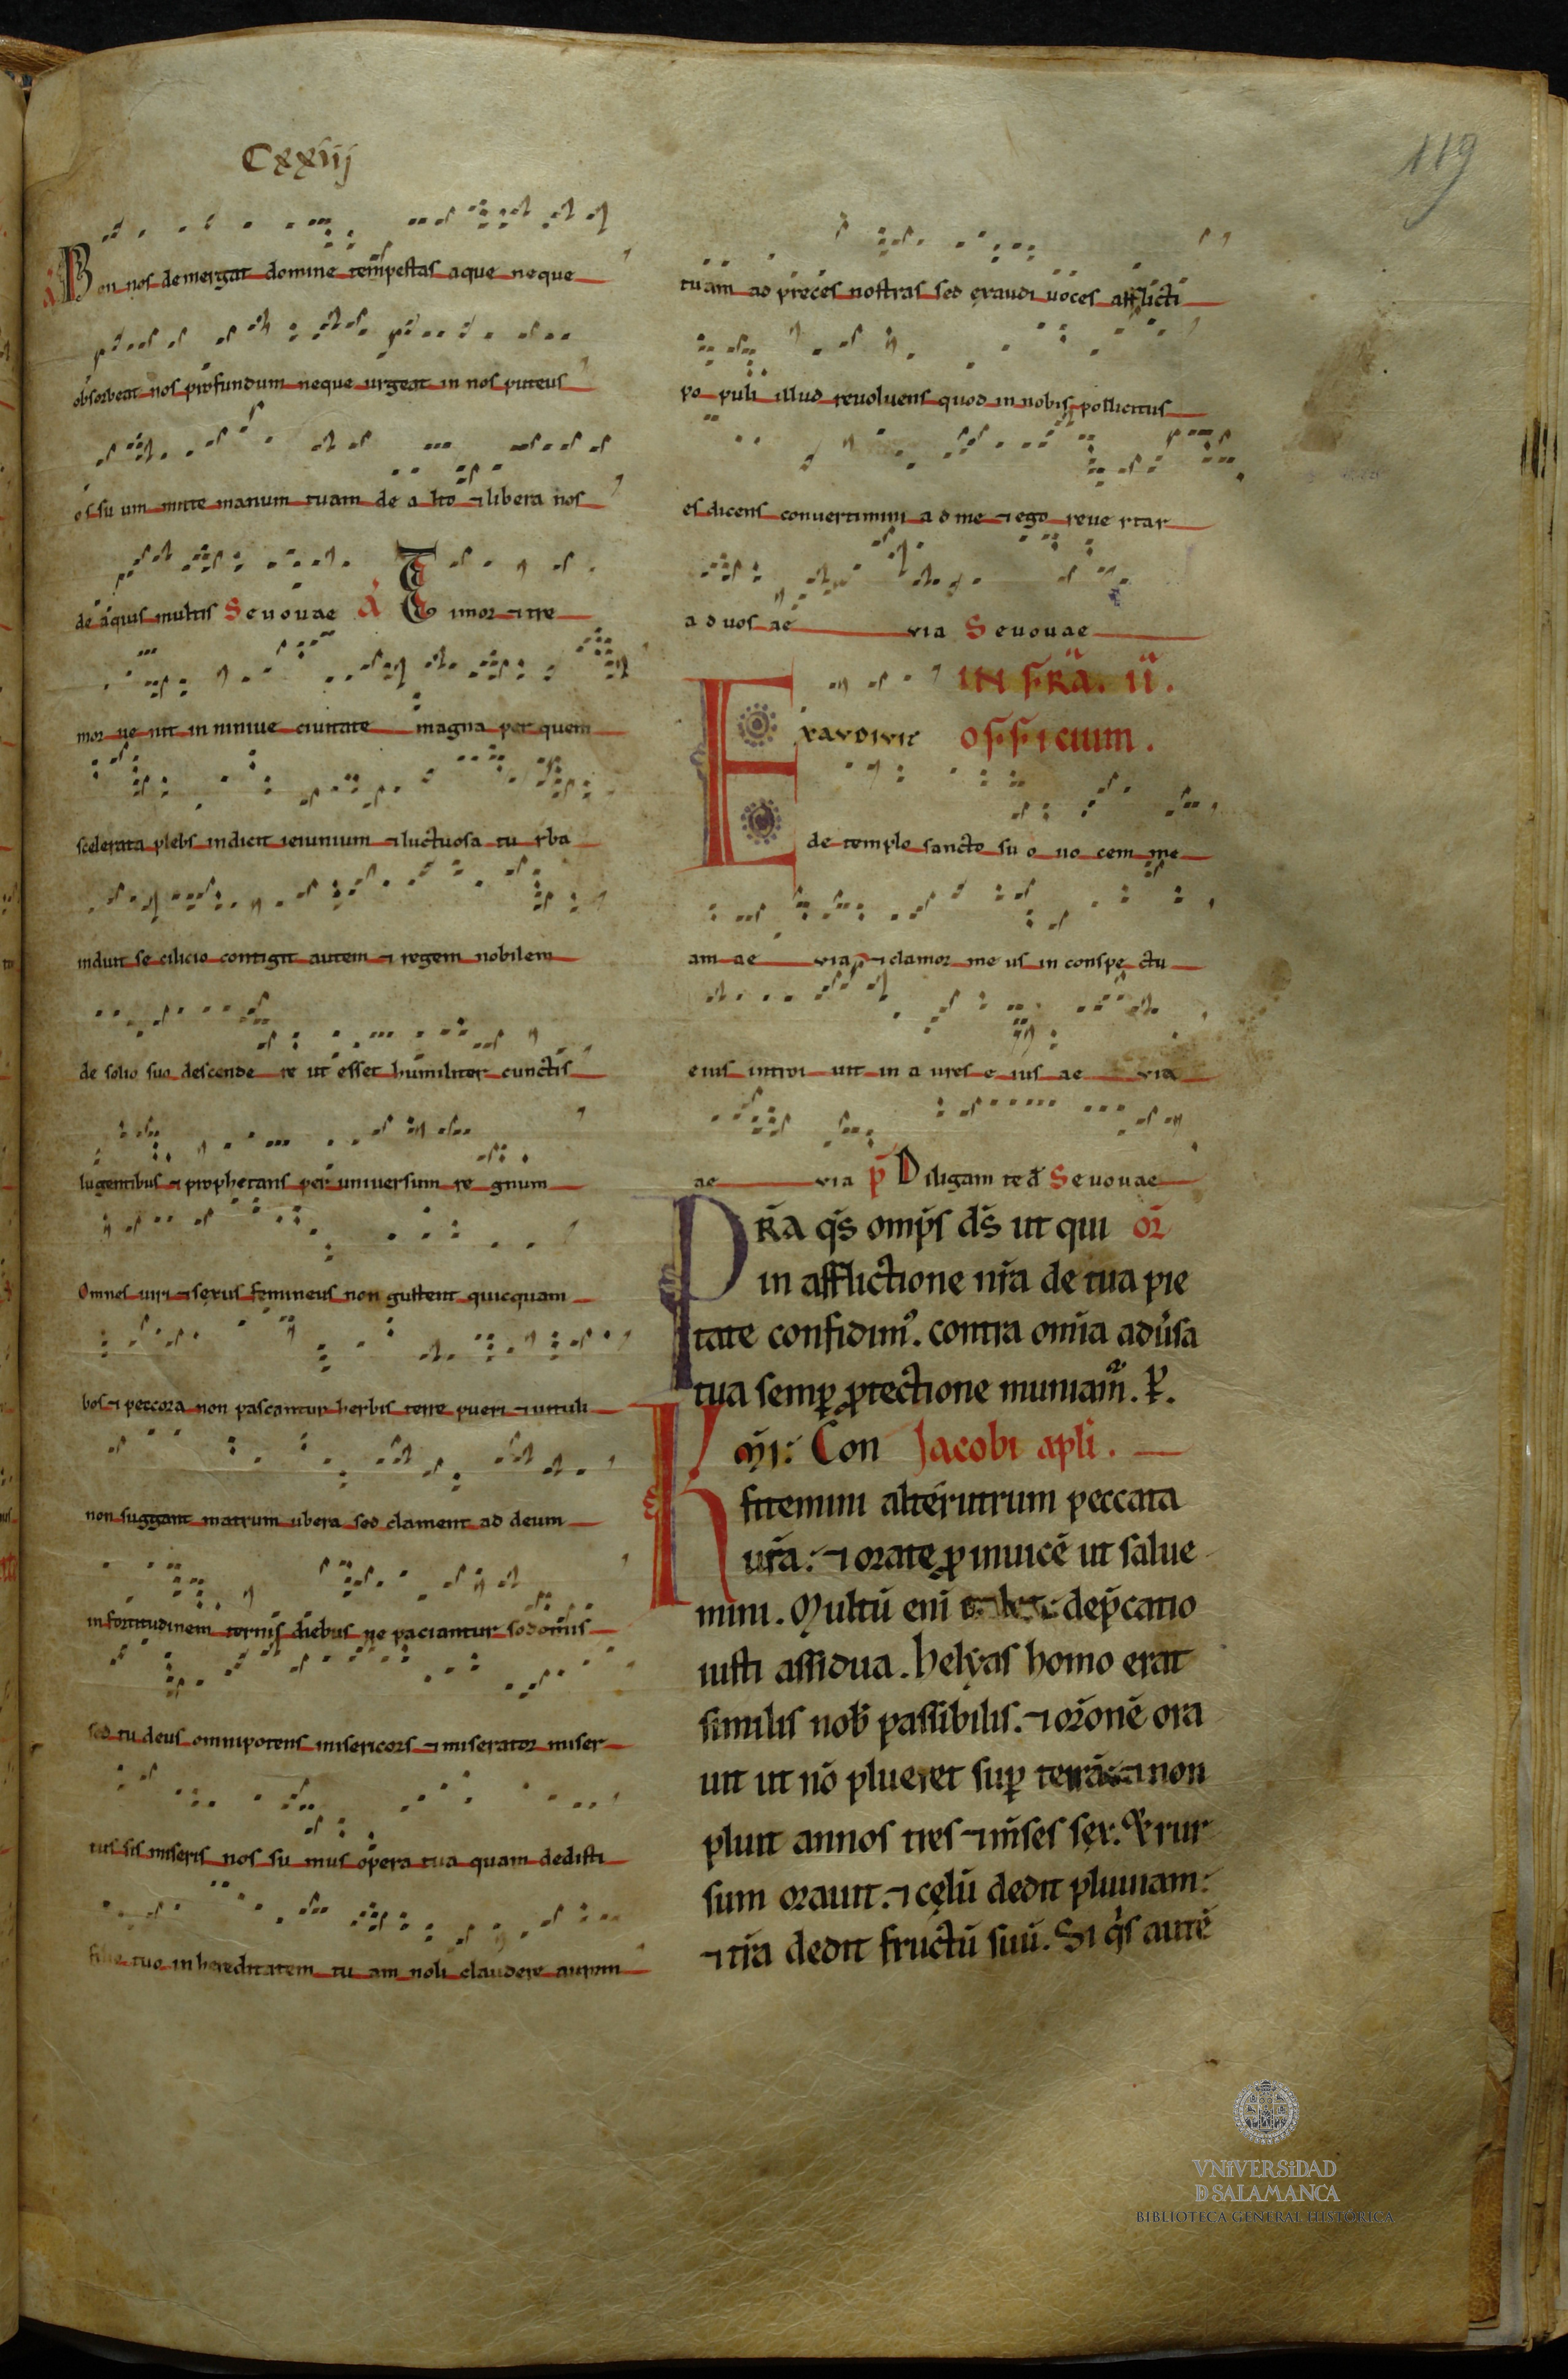 Cxxiij
119
a Non nos demergat domine tempestas aque neque
obsorbeat nos profundum neque urgeat in nos puteus
os su um mitte manum tuam de a lto ⁊ libera nos
de aquis multis Seuouae a Timor ⁊ tre
mor ue nit in niniue ciuitate magna per quem
scelerata plebs indicit ieiunium ⁊ luctuosa tu rba
induit se cilicio contigit autem ⁊ regem nobilem
de solio suo descende re ut esset humiliter cunctis
lugentibus ⁊ prophetans per uniuersum re gnum
Omnes uiri ⁊ sexus femineus non gustent quicquam
bos ⁊ peccora non pascantur herbis terre pueri ⁊ uituli
non suggant matrum ubera sed clament ad deum
in fortitudinem ternis diebus ne paciantur sodomis
sed tu deus omnipotens misericors ⁊ miserator miser
tus sis miseris nos su mus opera tua quam dedisti
filio tuo in hereditatem tu am noli claudere aurem
tuam ad preces nostras sed exaudi uoces afflicti
po puli illud reuoluens quod in nobis pollicitus
es dicens conuertimini a d me ⁊ ego reue rtar
a d uos ae via Seuouae
IN FR̃A. II.
EXAVDIVIT OFFICIUM.
de templo sancto su o uo cem me
am ae via ⁊ clamor me us in conspe ctu
eius introi uit in a ures e ius ae via
ae via p̃ Diligam te d̃ Seuouae
PR̃A q̃s omp̃s ds̃ ut qui or̃
in afflictione nr̃a de tua pie
tate confidim᷒. contra omĩa adũsa
tua semꝑ ꝓtectione muniam̃. ꝑ.
K mi: Con Jacobi apli.
fitemini alterutrum peccata
ur̃a: ⁊ orate ꝓ inuicẽ ut salue
mini. Multũ enĩ ualet dep̃catio
iusti assidua. helyas homo erat
similis nob̃ passibilis. ⁊ or̃onẽ ora
uit ut nõ plueret suꝑ terrã. ⁊ non
pluit annos tres ⁊ m̃ses sex. Et rur
sum orauit. ⁊ cęlũ dedit pluuiam:
⁊ tr̃a dedit fructũ suũ. Si q̃s autẽ
VNIVERSIDAD
D SALAMANCA
BIBLIOTECA GENERAL HISTÓRICA